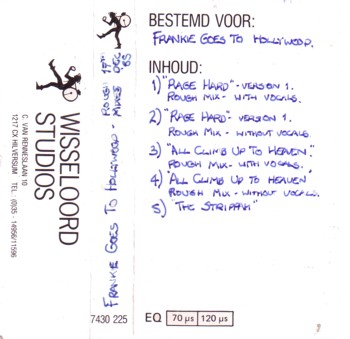 WISSELOORD
STUDIOS
C. VAN RENNESLAAN 10
1217 CX HILVERSUM TEL. (035 - 14956/11596
FRANKIE GOES TO HOLLYWOOD - ROUGH MIXES 17TH DEC 85
7430 225
BESTEMD VOOR:
FRANKIE GOES TO HOLLYWOOD.
INHOUD:
1) "RAGE HARD" - VERSION 1.
ROUGH MIX - WITH VOCALS.
2) "RAGE HARD" - VERSION 1.
ROUGH MIX - WITHOUT VOCALS.
3) "ALL CLIMB UP TO HEAVEN."
ROUGH MIX - WITH VOCALS.
4) "ALL CLIMB UP TO HEAVEN"
ROUGH MIX - WITHOUT VOCALS.
5) "THE STRIPPAH"
EQ 70 µs 120 µs